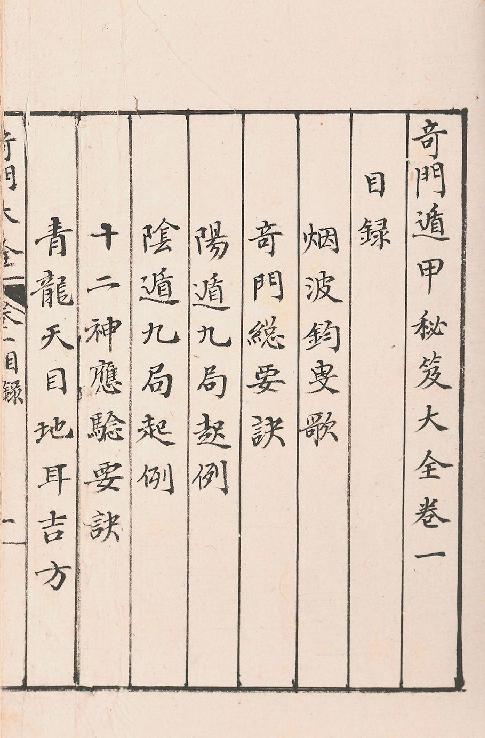 奇門遁甲秘笈大全卷一
目録
烟波釣叟歌
奇門総要訣
陽遁九局起例
陰遁九局起例
十二神應驗要訣
青龍天目地耳吉方
奇門大全 卷一目録 一